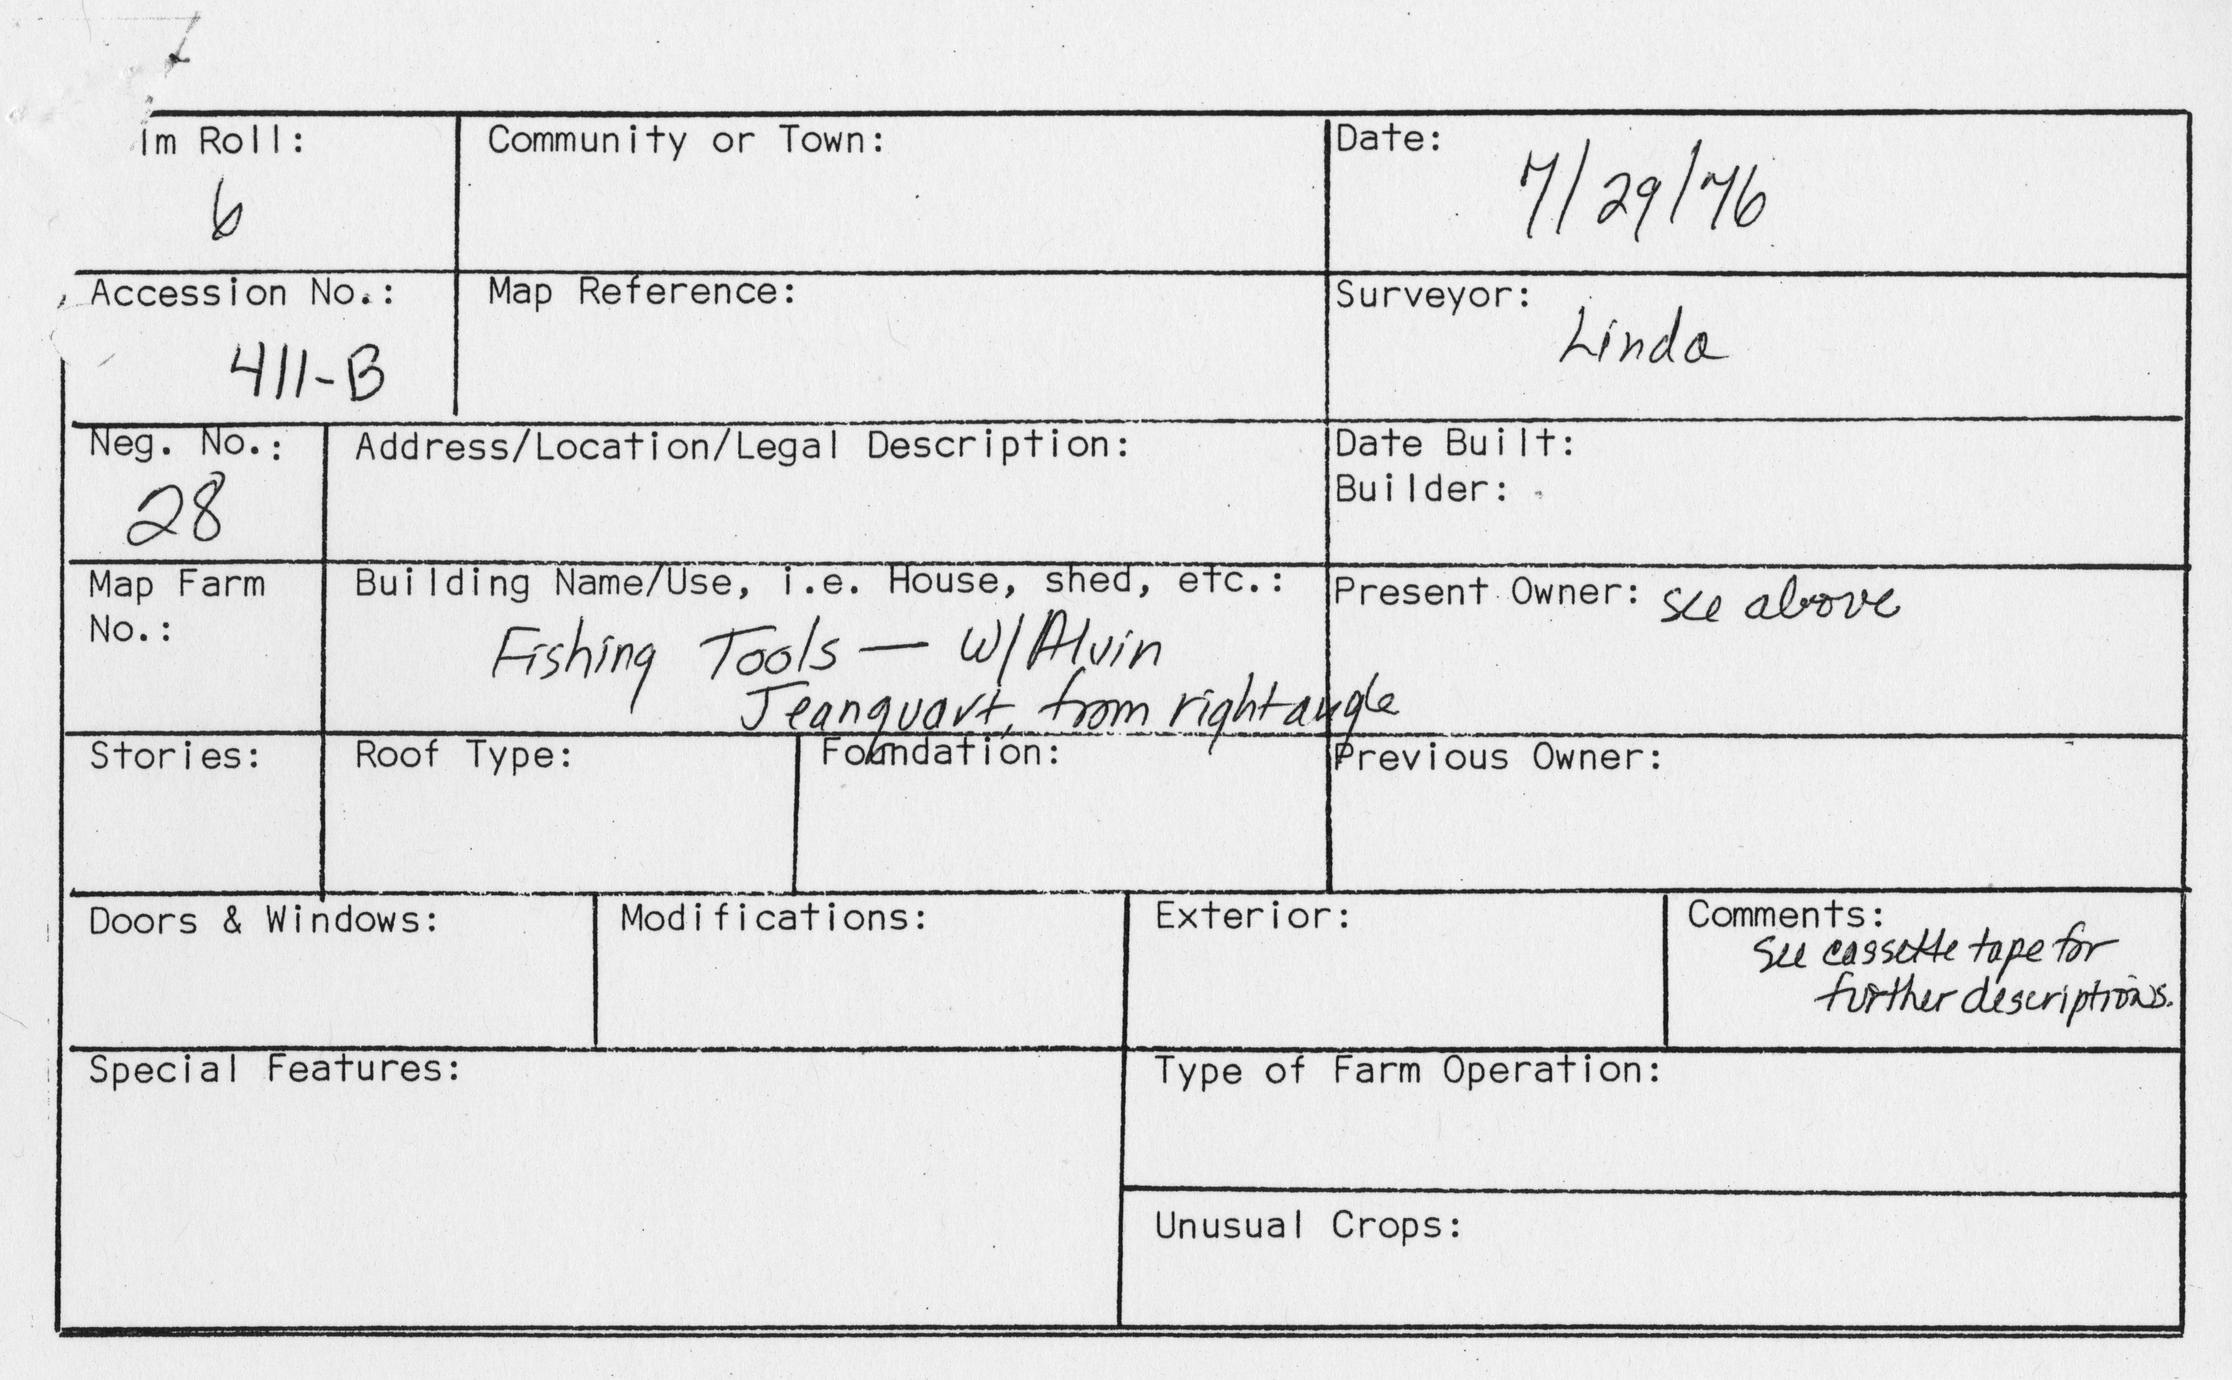 lm Roll: Community or Town: Date:
6 7/29/76
Accession No.: Map Reference: Surveyor:
411-B Linda
Neg. No.: Address/Location/Legal Description: Date Built:
28 Builder:
Map Farm Building Name/Use, i.e. House, shed, etc.: Present Owner: see above
No.:
Fishing Tools — w/Alvin
Jeanquart, from right angle
Stories: Roof Type: Foundation: Previous Owner:
Doors & Windows: Modifications: Exterior: Comments:
See cassette tape for
further descriptions.
Special Features: Type of Farm Operation:
Unusual Crops: